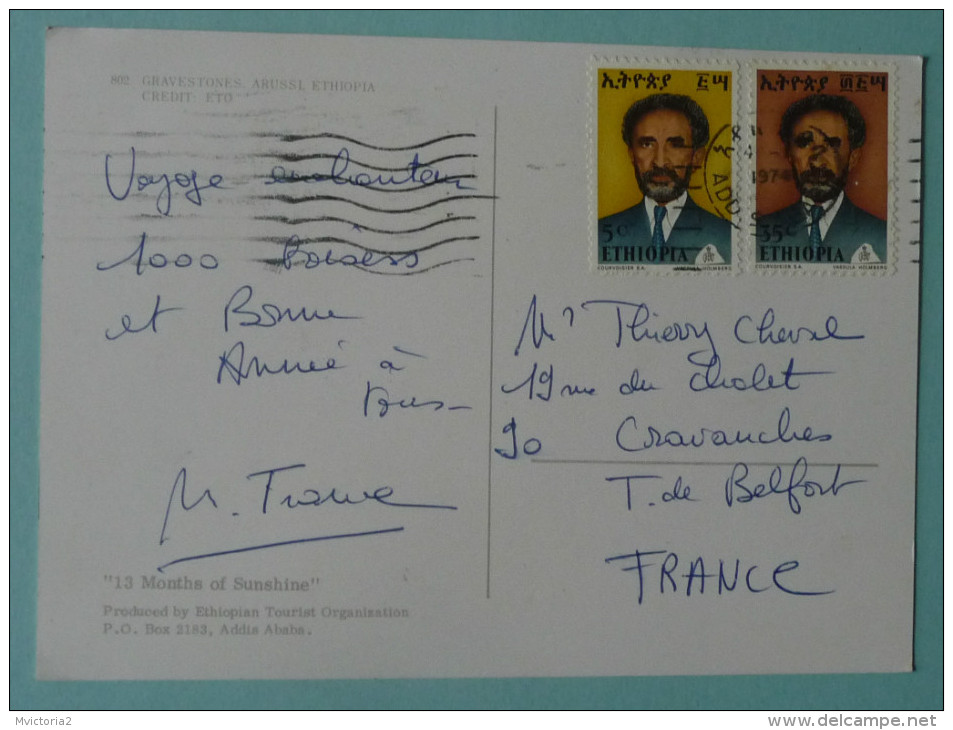 802 GRAVESTONES. ARUSSI, ETHIOPIA
CREDIT: ETO
Voyage enchanteur
1000 Baisers
et Bonne
Année à
tous_
M. France
"13 Months of Sunshine"
Produced by Ethiopian Tourist Organization
P.O. Box 2183, Addis Ababa.
ኢትዮጵያ ፭ሣ
5c
ETHIOPIA
COURVOISIER S.A.
HOLMBERG
ኢትዮጵያ ፴፭ሣ
35c
ETHIOPIA
COURVOISIER S.A.
URSULA HOLMBERG
1974
ADDIS
Mr Thierry Cheval
19 rue du Chalet
90 Cravanches
T. de Belfort
FRANCE
Mvictoria2
www.delcampe.net